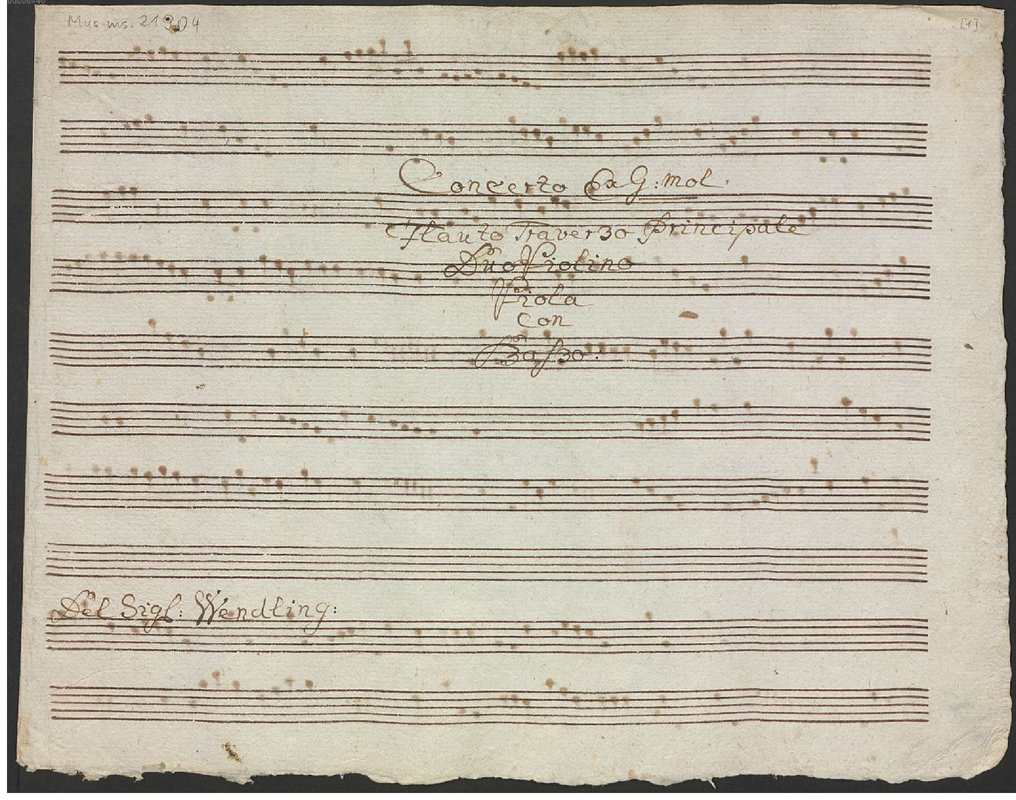 Mus. ms. 21904
[1]
Concerto Ex G: mol.
Flauto Traverso Principale
Duo Violino
Viola
con
Baßo:
Del Sigl: Wendling: